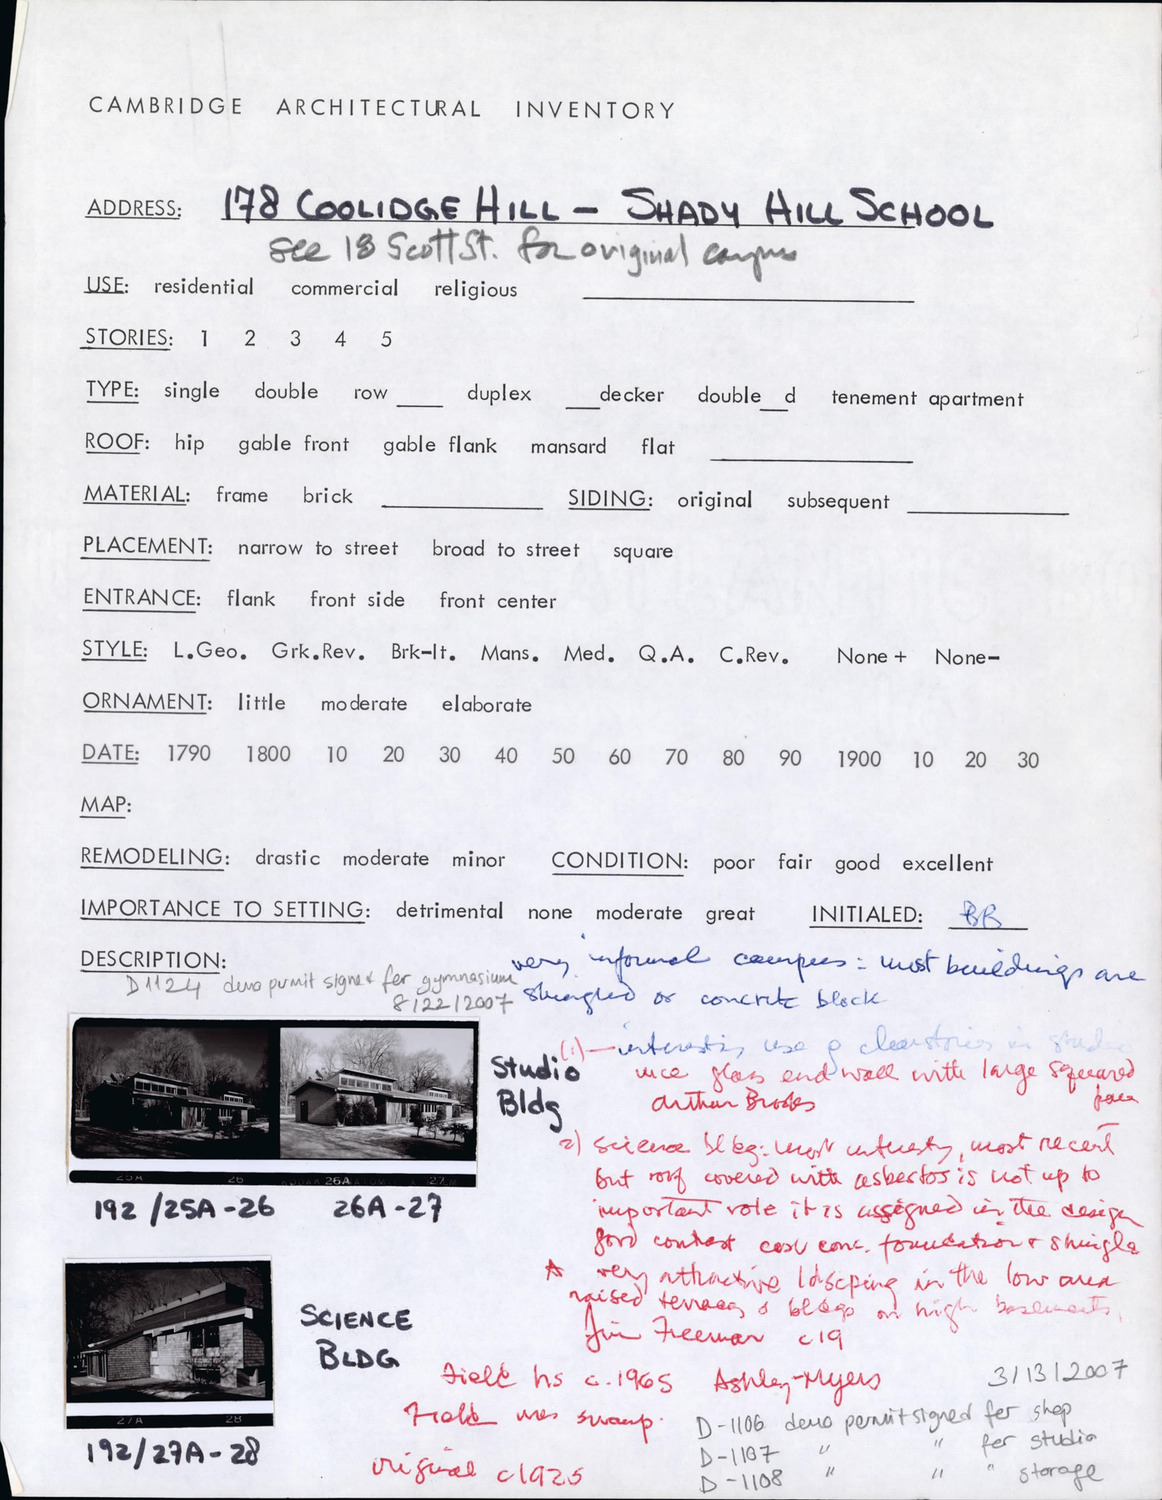 CAMBRIDGE ARCHITECTURAL INVENTORY
ADDRESS: 178 COOLIDGE HILL – SHADY HILL SCHOOL
see 18 Scott St. for original campus
USE: residential commercial religious
STORIES: 1 2 3 4 5
TYPE: single double row ___ duplex ___decker double__d tenement apartment
ROOF: hip gable front gable flank mansard flat
MATERIAL: frame brick SIDING: original subsequent
PLACEMENT: narrow to street broad to street square
ENTRANCE: flank front side front center
STYLE: L.Geo. Grk.Rev. Brk-It. Mans. Med. Q.A. C.Rev. None + None-
ORNAMENT: little moderate elaborate
DATE: 1790 1800 10 20 30 40 50 60 70 80 90 1900 10 20 30
MAP:
REMODELING: drastic moderate minor CONDITION: poor fair good excellent
IMPORTANCE TO SETTING: detrimental none moderate great INITIALED: BR
DESCRIPTION: very informal campus: most buildings are
D 1124 demo permit signed for gymnasium
8/22/2007
shingled or concrete block
(1) — interesting use of clerestories in studio
nice glass end wall with large squared
Arthur Brooks
Studio
Bldg
2) Science bldg: most interestg, most recent
but roof covered with asbestos is not up to
important role it is assigned in the design
good contrast conc. foundation + shingle
26 26A 27
192 /25A-26 26A-27
very attractive ldscping in the low area
raised terraces & bldgs on high basements.
Jim Freeman c19
SCIENCE
BLDG
27A 28
192/27A-28
Field hs c.1965 Ashley-Myers
Field was swamp.
original c1925
3/13/2007
D-1106 demo permit signed for shop
D-1107 " " for studio
D-1108 " " " storage